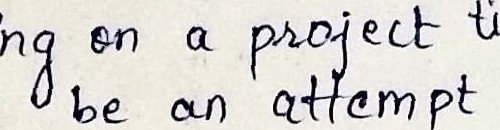 ng on a project ti
be an attempt